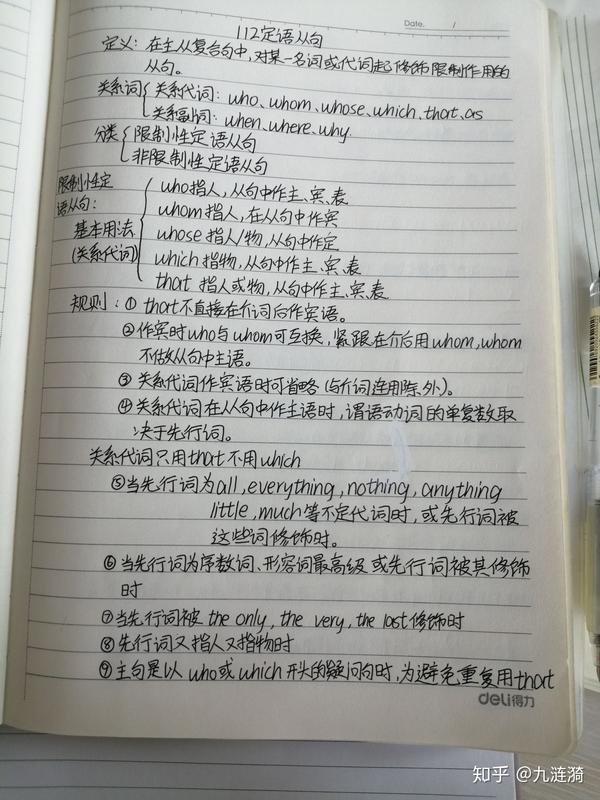 Date. /
112定语从句
定义：在主从复合句中，对某一名词或代词起修饰限制作用的
从句。
关系词 关系代词：who、whom、whose、which、that、as
关系副词：when、where、why.
分类 限制性定语从句
非限制性定语从句
限制性定
语从句：
基本用法
(关系代词)
who指人，从句中作主、宾、表
whom指人，在从句中作宾
whose指人/物，从句中作定
which指物，从句中作主、宾、表
that 指人或物，从句中作主、宾、表
规则：① that不直接在介词后作宾语。
②作宾时who与whom可互换，紧跟在介后用whom，whom
不做从句中主语。
③ 关系代词作宾语时可省略(与介词连用除外)。
④关系代词在从句中作主语时，谓语动词的单复数取
决于先行词。
关系代词只用that不用which
⑤当先行词为all，everything，nothing，anything
little，much等不定代词时，或先行词被
这些词修饰时。
⑥当先行词为序数词、形容词最高级或先行词被其修饰
时
⑦当先行词被 the only，the very，the last修饰时
⑧先行词又指人又指物时
⑨主句是以 who或which开头的疑问句时，为避免重复用that
deli得力
知乎 @九涟漪